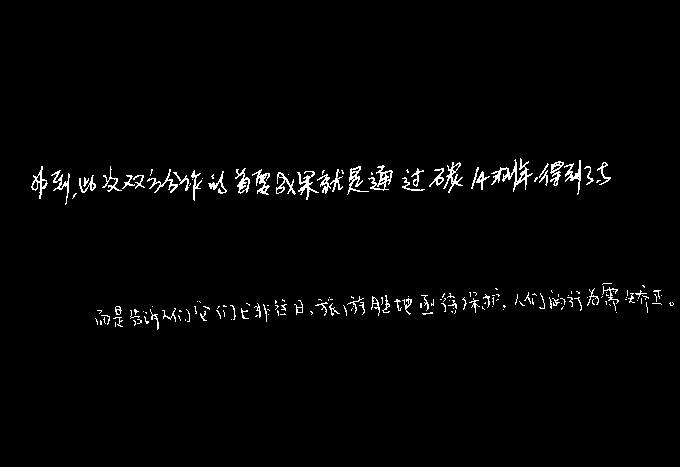 到,此次双方合作的首要成果就是通过碳14测年,得到了古
而是告诉人们它们已非往日,旅游胜地亟待保护,人们的行为需要矫正。